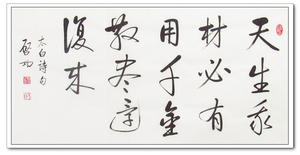 天生我
材必有
用千金
散尽還
復来
太白詩句
啟功